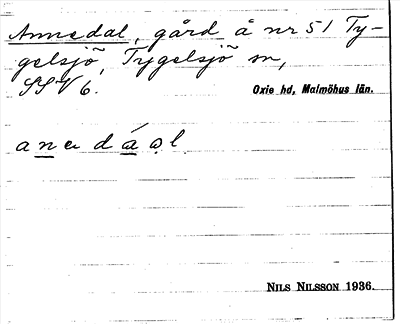 Annedal, gård å nr 51 Ty-
gelsjö, Tygelsjö sn,
SSV 6. Oxie hd, Malmöhus län.
NILS NILSSON 1936.